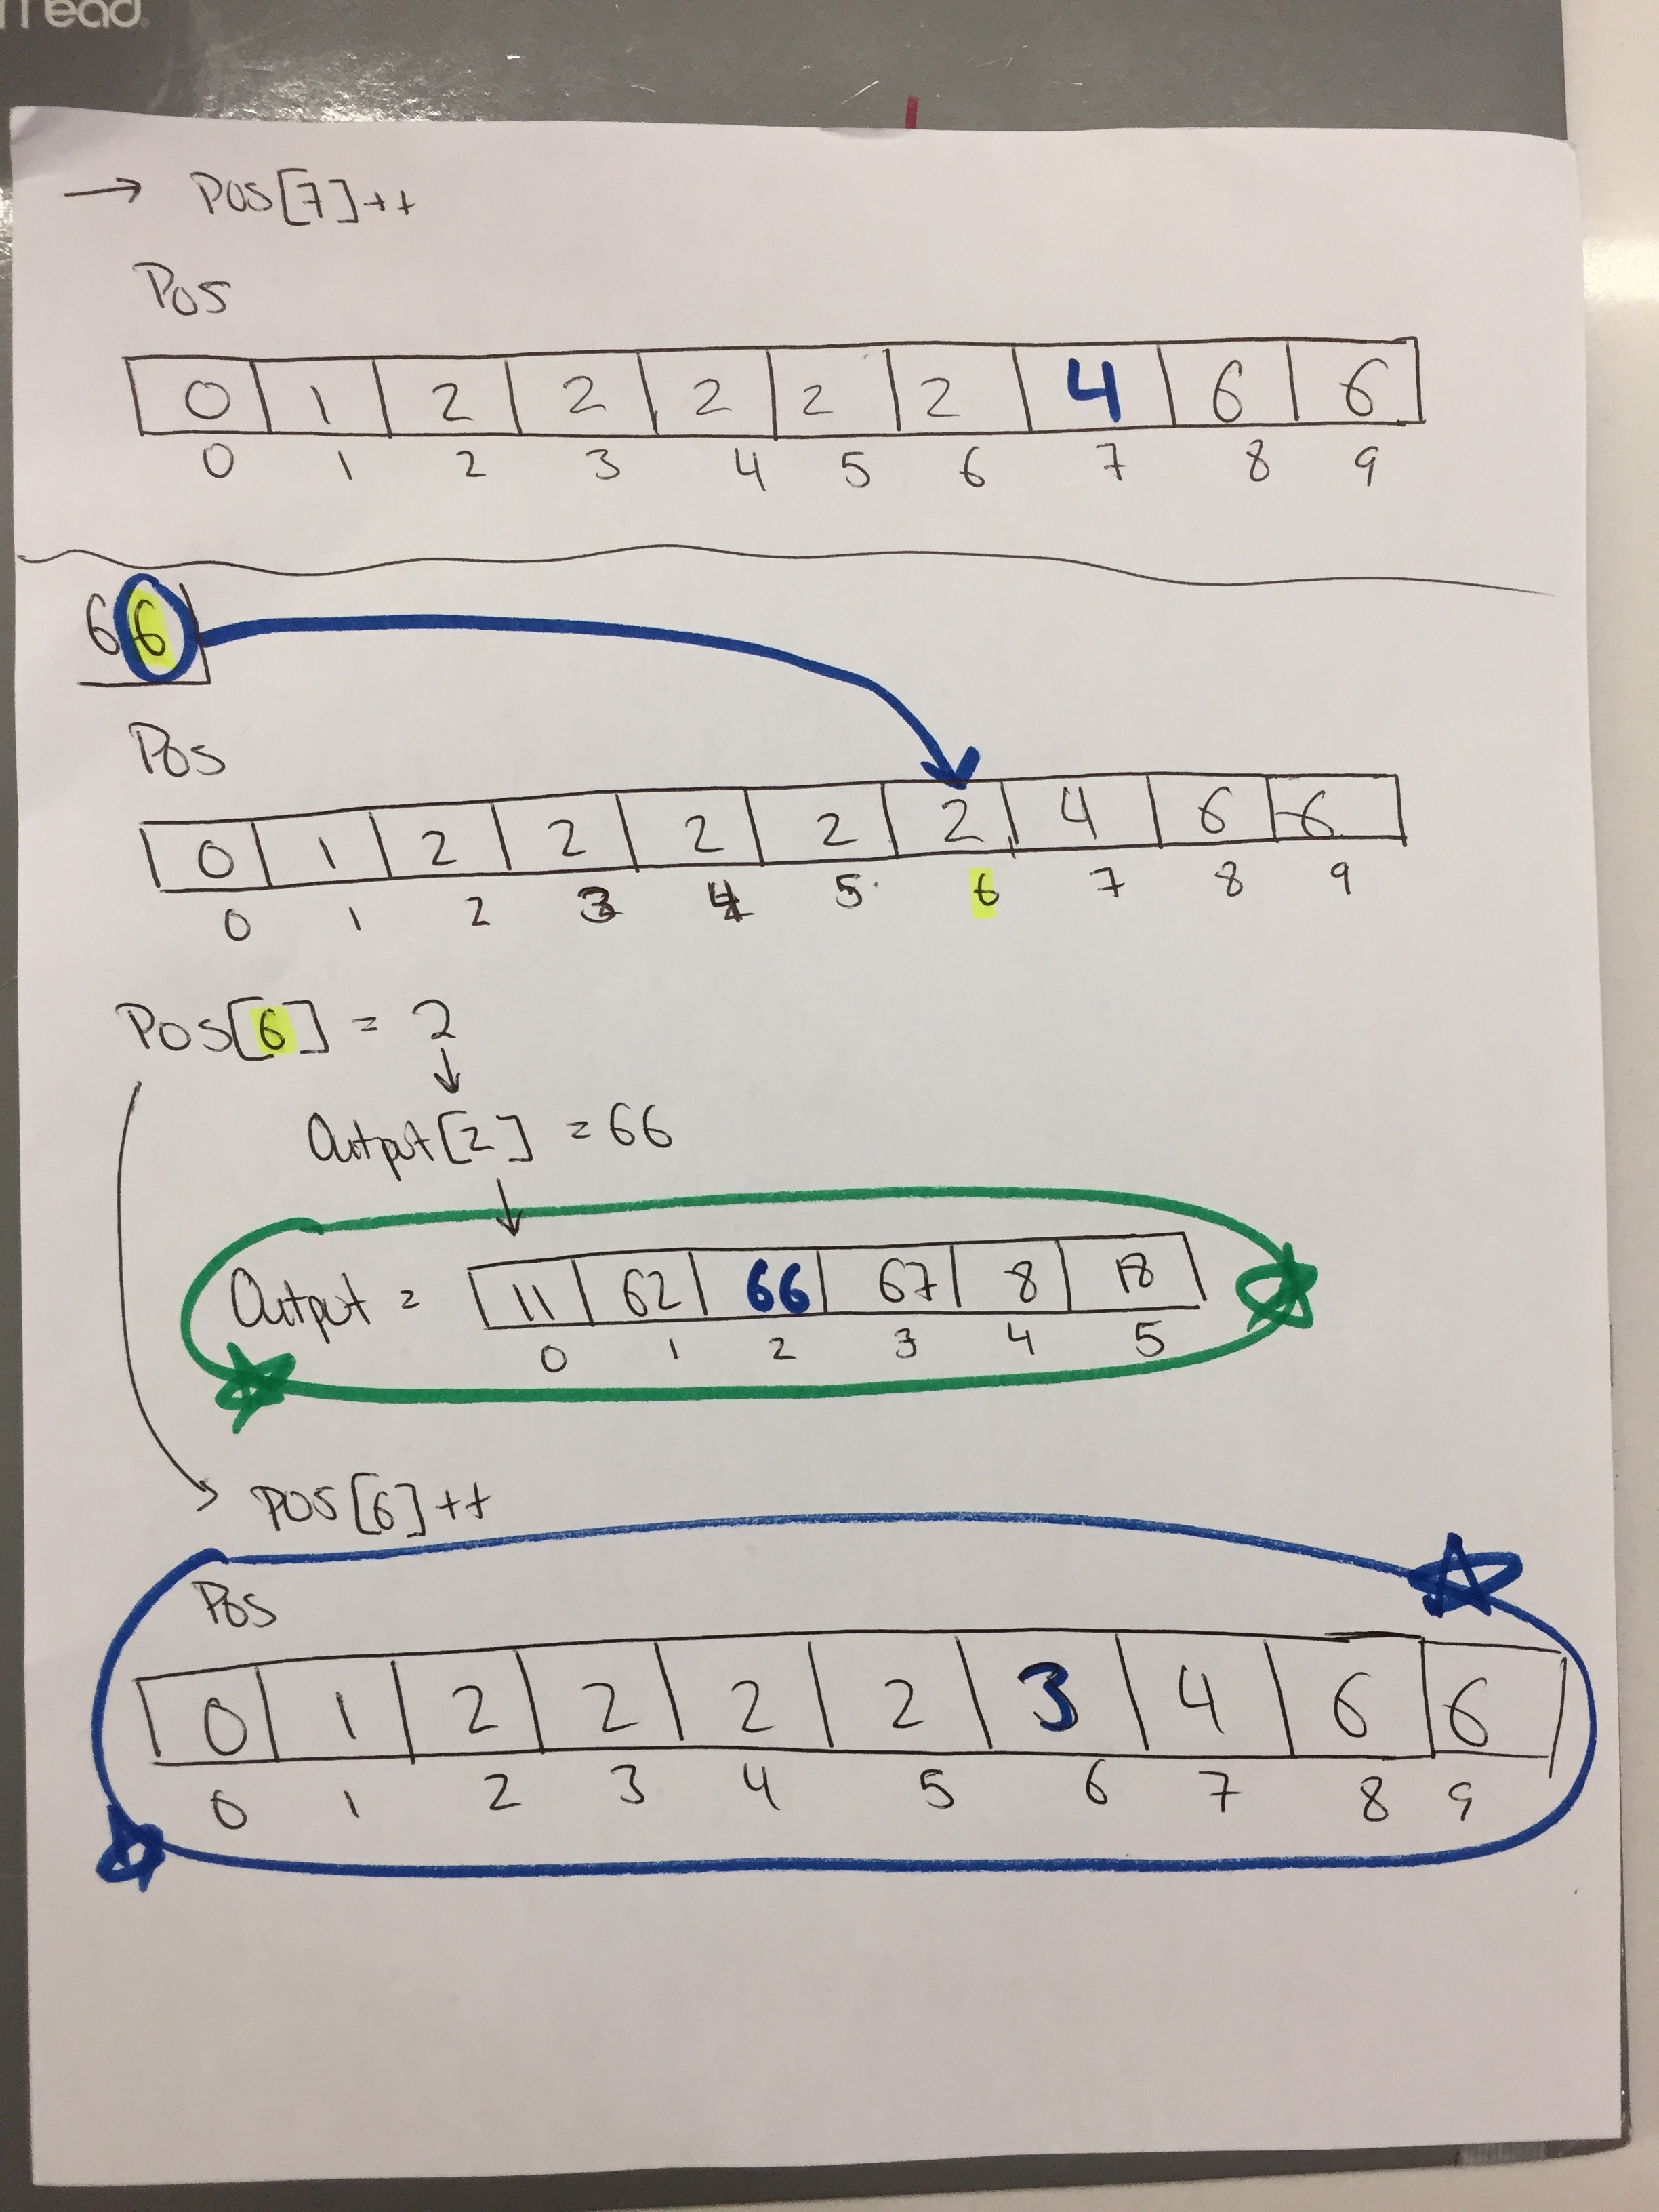 mead
→ POS[7]++
Pos
0 1 2 2 2 2 2 4 6 6
0 1 2 3 4 5 6 7 8 9
66
Pos
0 1 2 2 2 2 2 4 6 6
0 1 2 3 4 5 6 7 8 9
Pos[6] = 2
↓
Output[2] = 66
↓
Output = 11 62 66 67 8 18
0 1 2 3 4 5
POS[6]++
Pos
0 1 2 2 2 2 3 4 6 6
0 1 2 3 4 5 6 7 8 9